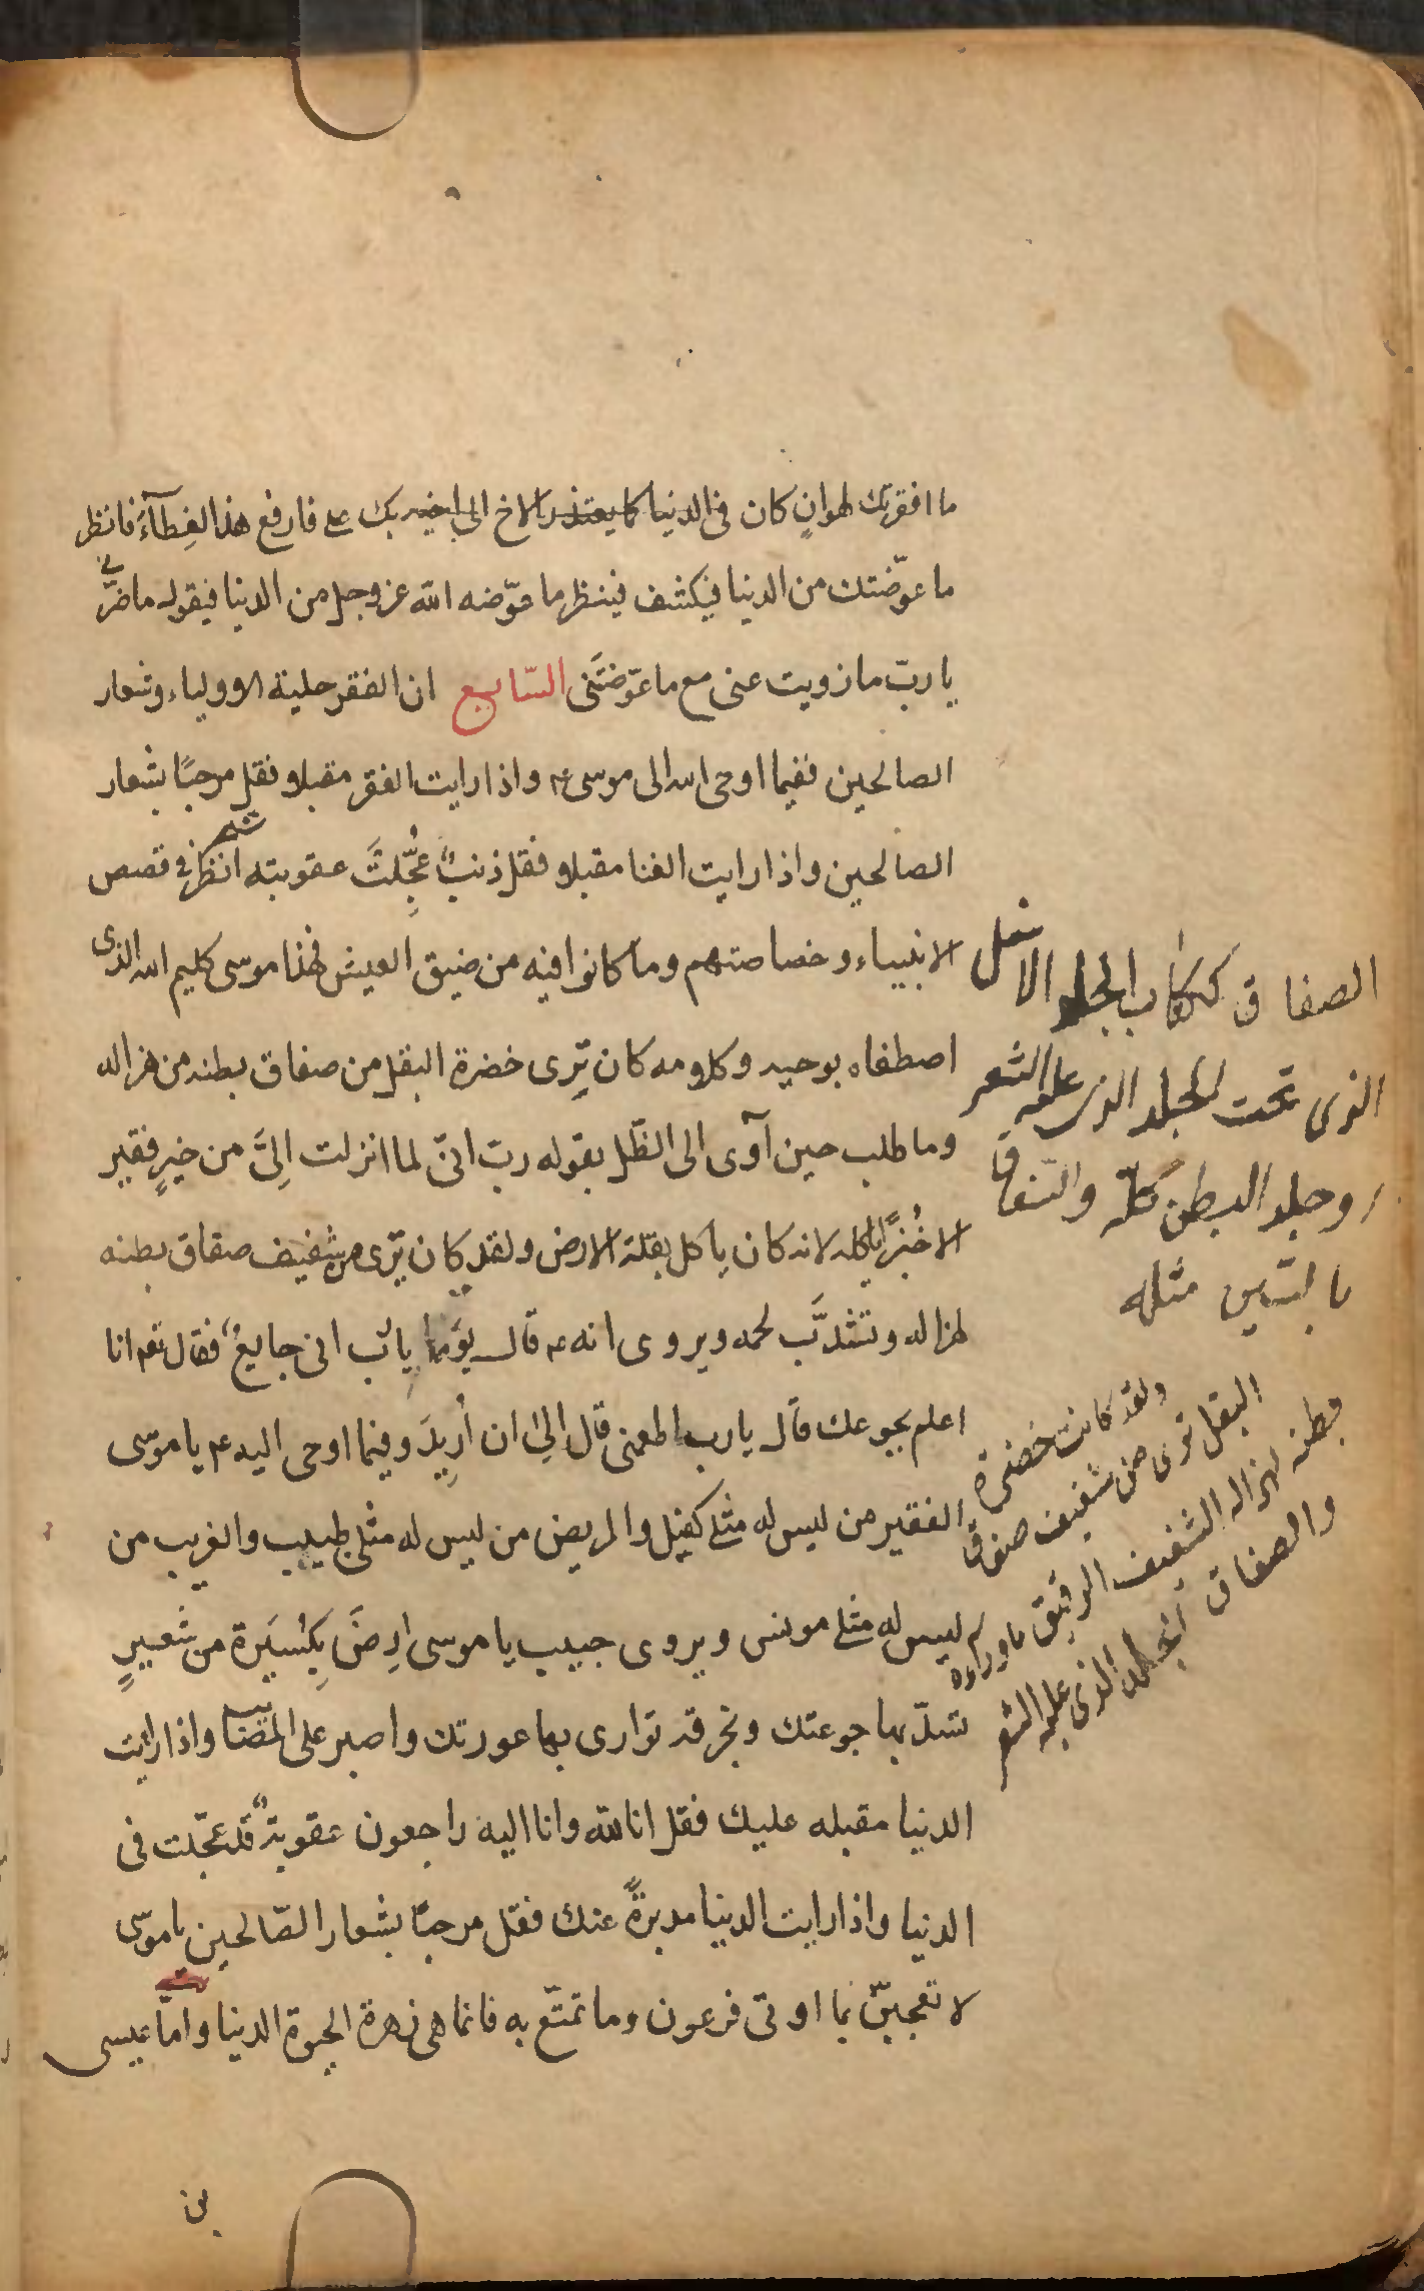 ما افقرتك لهوانٍ كان فى الدنيا كما يعتذر الاخ الى اخيه بك على فارفع هذا الغِطآءَ فانظر
ما عوّضتك من الدنيا فيكشف فينظر ما عوّضه الله عز وجل من الدنيا فيقول ما ضرّنى
يا ربّ ما زويت عنى مع ما عوّضتَنى السّابع ان الفقر حلية الاولياء وشعار
الصالحين ففيما اوحى الله الى موسى ع واذا رايت الفقر مقبلا فقل مرحبًا بشعار
الصالحين واذا رايت الغنا مقبلا فقل ذنبٌ عُجِّلتَ عقوبته ثم انظر فى قصص
الانبياء وخصاصتهم وما كانوا فيه من ضيق العيش فهذا موسى كليم الله الذى
اصطفاه بوحيه وكلامه كان يُرى خضرة البقل من صفاق بطنه من هزاله
وما طلب حين آوى الى الظّل بقوله ربّ انّى لما انزلت اِلىَّ من خيرٍ فقير
الا خُبزًا ياكله لانه كان ياكل بقلة الارض ولقد كان يُرى من شفيف صفاق بطنه
لهزاله وتشذَّب لحمه ويروى انه ع قال يومًا يا ربّ انى جايعٌ فقال تع انا
اعلم بجوعك قال يا رب اطعمنى قال الى ان أُرِيدَ وفيما اوحى اليه ع يا موسى
الفقير من ليس له مثلى كفيل والمريض من ليس له مثلى طبيب والغريب من
ليس له مثلى مونس ويروى حبيب يا موسى ارضَ بِكُسَيرة من شعيرٍ
تسدّ بها جوعتك وبخرقة توارى بها عورتك واصبر على المصائب واذا رايت
الدنيا مقبله عليك فقل انا لله وانا اليه راجعون عقوبةٌ قد عجّلت فى
الدنيا واذا رايت الدنيا مدبرةً عنك فقل مرحبًا بشعار الصّالحين يا موسى
لا تعجبنّ بما اوتى فرعون وما تمتّع به فانما هى زهرة الحيوة الدنيا واما عيسى
بن
الصفاق ككتاب الجلد الاسفل
الذى تحت الجلد الذى عليه الشعر
وجلد البطن كلّه والسّفاق
بالسّين مثله
ولقد كانت خضرة
البقل ترى من شفيف صفاق
بطنه لهزاله الشفيف الرقيق ما وراءه
والصفاق الجلد الذى عليه الشعر